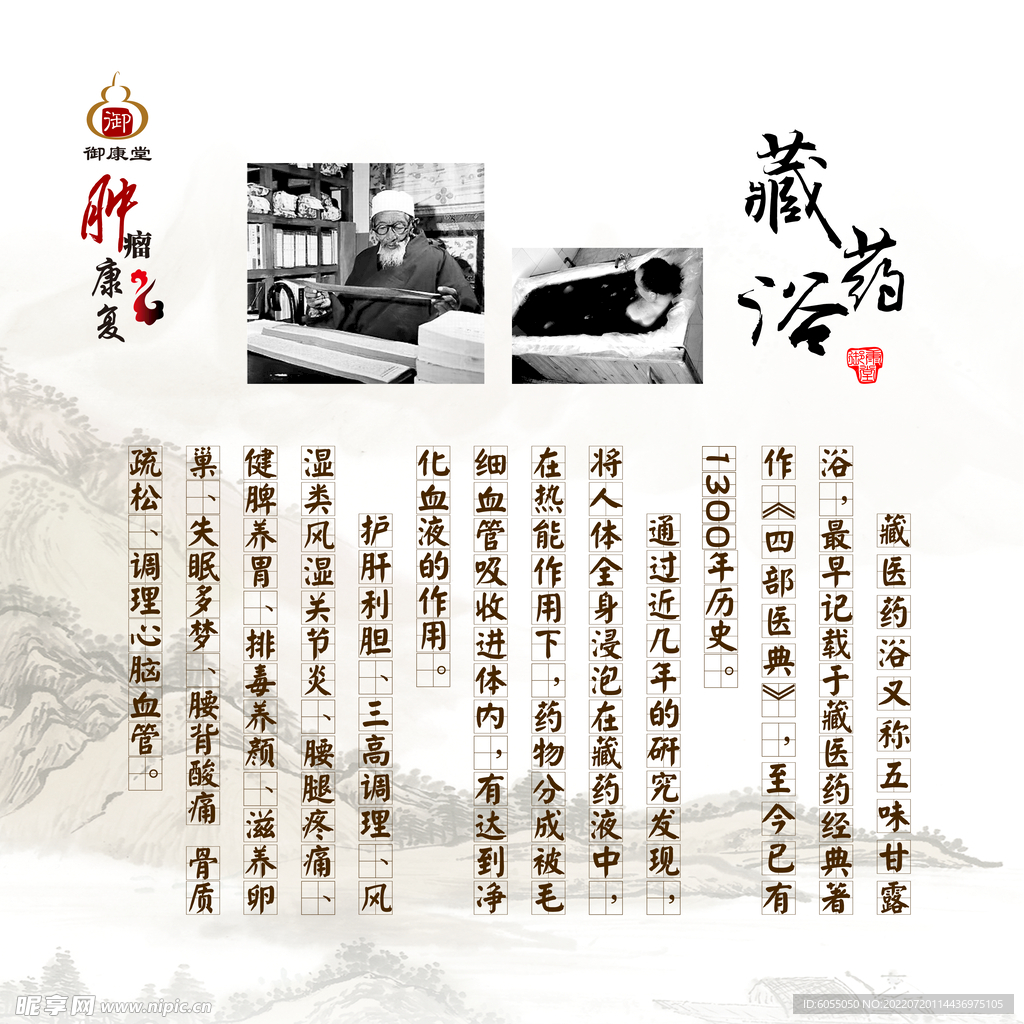 御
御康堂
肿瘤康复
藏药浴
御康堂
藏医药浴又称五味甘露
浴，最早记载于藏医药经典著
作《四部医典》，至今已有
1300年历史。
通过近几年的研究发现，
将人体全身浸泡在藏药液中，
在热能作用下，药物分成被毛
细血管吸收进体内，有达到净
化血液的作用。
护肝利胆、三高调理、风
湿类风湿关节炎、腰腿疼痛、
健脾养胃、排毒养颜、滋养卵
巢、失眠多梦、腰背酸痛 骨质
疏松、调理心脑血管。
昵享网 www.nipic.cn
ID:6055050 NO:20220720114436975105